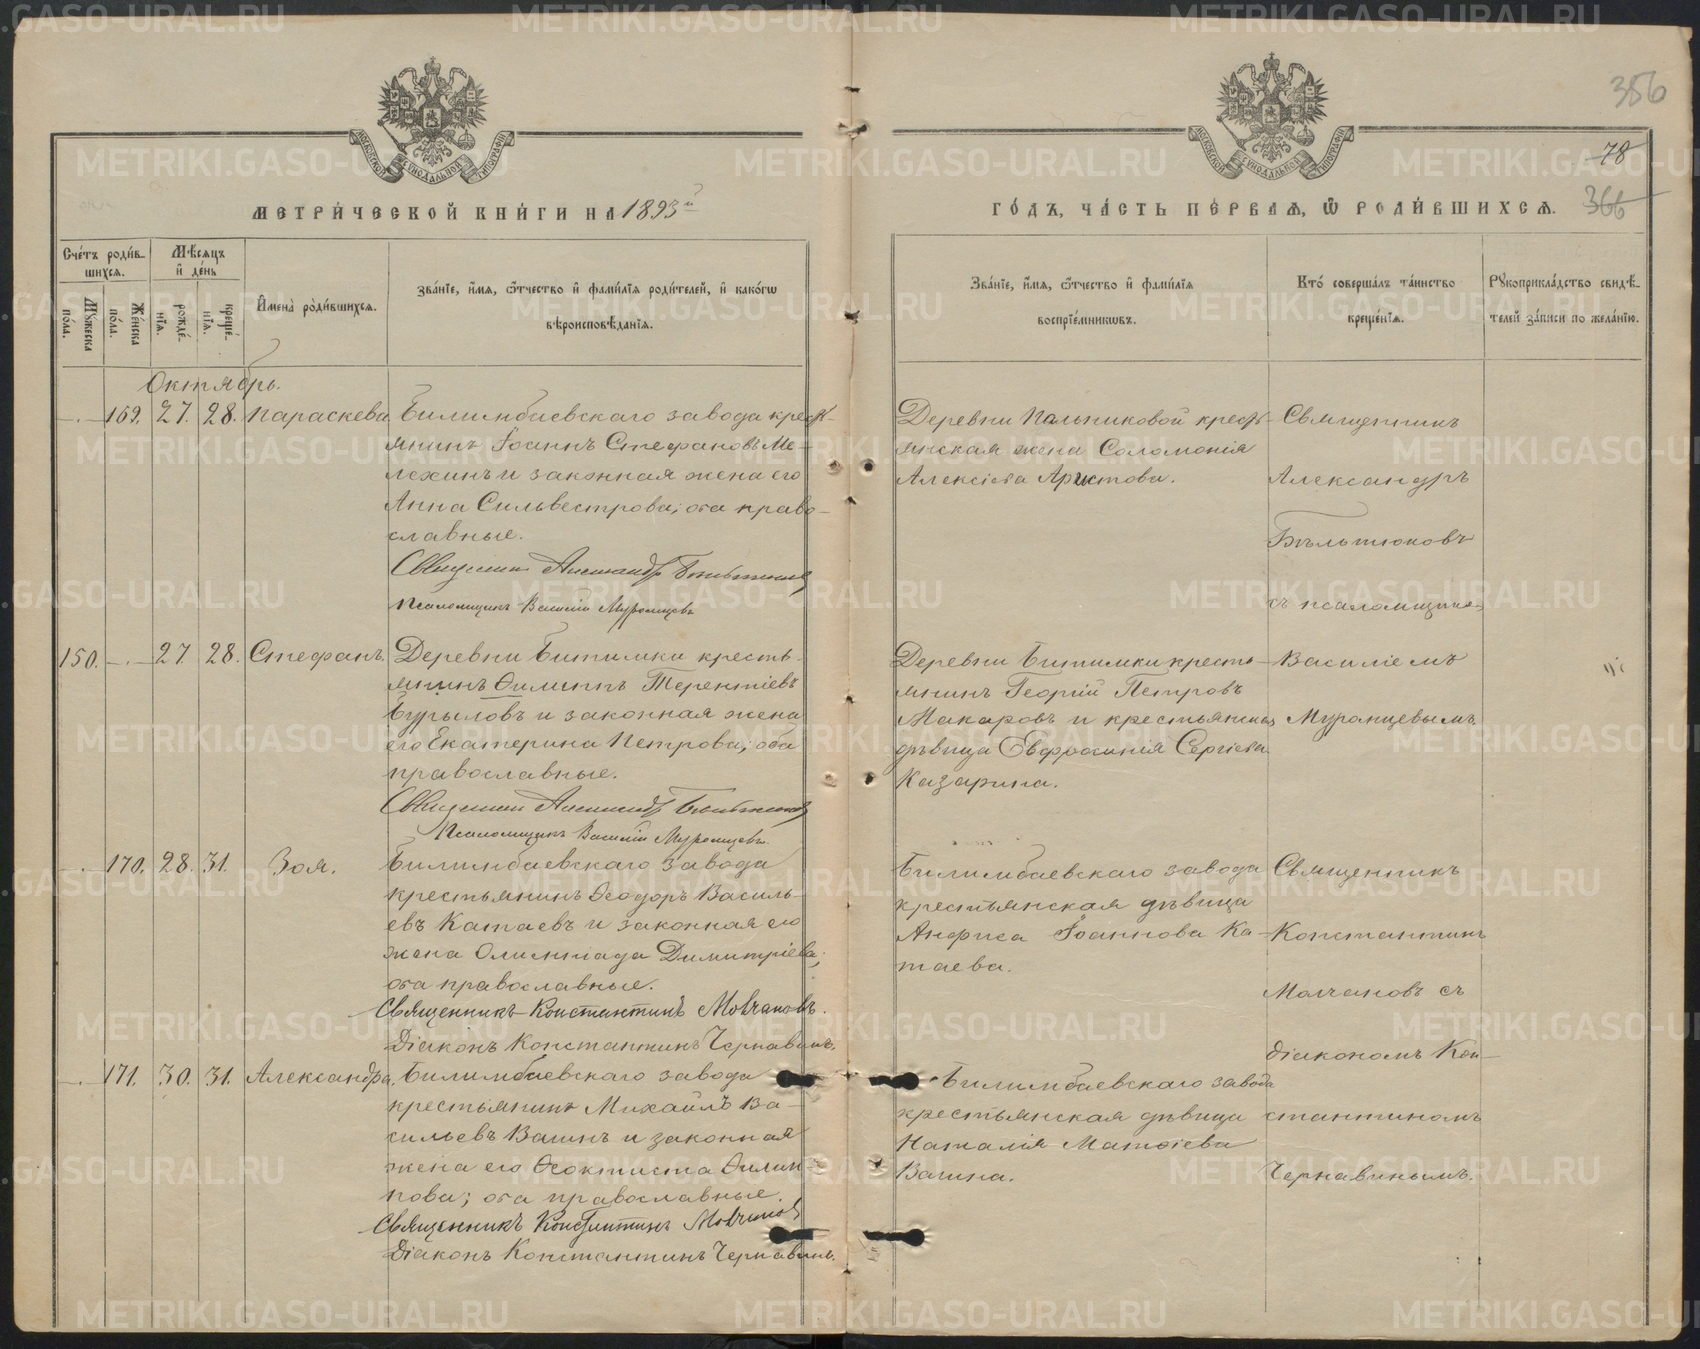 356
78
366
МЕТРИ́ЧЕСКОЙ КНИ́ГИ НА 1893й
ГО́ДЪ, ЧА́СТЬ ПЕ́РВАЯ, Ѡ РОДИ́ВШИХСЯ.
Счётъ роди́в-
шихся.
Мꙋ́жеска по́ла.
Же́нска по́ла.
Мѣ́сяцъ и де́нь
рожде́нїя.
креще́нїя.
И҆мена̀ роди́вшихся.
Зва́нїе, и҆́мя, ѻ҆́тчество и҆ фами́лїя роди́телей, и҆ како́гѡ
вѣроисповѣ́данїя.
Зва́нїе, и҆́мя, ѻ҆́тчество и҆ фами́лїя
воспрїе́мникѡвъ.
Кто́ соверша́лъ та́инство
креще́нїя.
Рꙋкоприкла́дство свидѣ́-
телей за́писи по жела́нїю.
Октябрь.
169. 27. 28. Параскева
Билимбаевскаго завода кресть-
янинъ Іоаннъ Стефановъ Ме-
лехинъ и законная жена его
Анна Сильвестрова; оба право-
славные.
Священникъ Александръ Бѣльтюковъ
Псаломщикъ Василій Муромцевъ
Деревни Пальниковой кресть-
янская жена Соломонія
Алексіева Аристова.
Священникъ
Александръ
Бѣльтюковъ
съ псаломщико-
150. 27. 28. Стефанъ.
Деревни Битимки кресть-
янинъ Филиппъ Терентіевъ
Бурыловъ и законная жена
его Екатерина Петрова; оба
православные.
Священникъ Александръ Бѣльтюковъ
Псаломщикъ Василій Муромцевъ.
Деревни Битимки кресть-
янинъ Георгій Петровъ
Макаровъ и крестьянская
дѣвица Евфросинія Сергіева
Казарина.
Василіемъ
Муромцевымъ.
170. 28. 31. Зоя.
Билимбаевскаго завода
крестьянинъ Ѳеодоръ Василь-
евъ Катаевъ и законная его
жена Олимпіада Димитріева;
оба православные.
Священникъ Константинъ Молчановъ.
Діаконъ Константинъ Чернавинъ.
Билимбаевскаго завода
крестьянская дѣвица
Анфиса Іоаннова Ка-
таева.
Священникъ
Константинъ
Молчановъ съ
діакономъ Кон-
171. 30. 31. Александра.
Билимбаевскаго завода
крестьянинъ Михаилъ Ва-
сильевъ Вагинъ и законная
жена его Ѳеоктиста Филип-
пова; оба православные.
Священникъ Константинъ Молчановъ
Діаконъ Константинъ Чернавинъ.
Билимбаевскаго завода
крестьянская дѣвица
Наталія Матѳіева
Вагина.
стантиномъ
Чернавинымъ.
METRIKI.GASO-URAL.RU